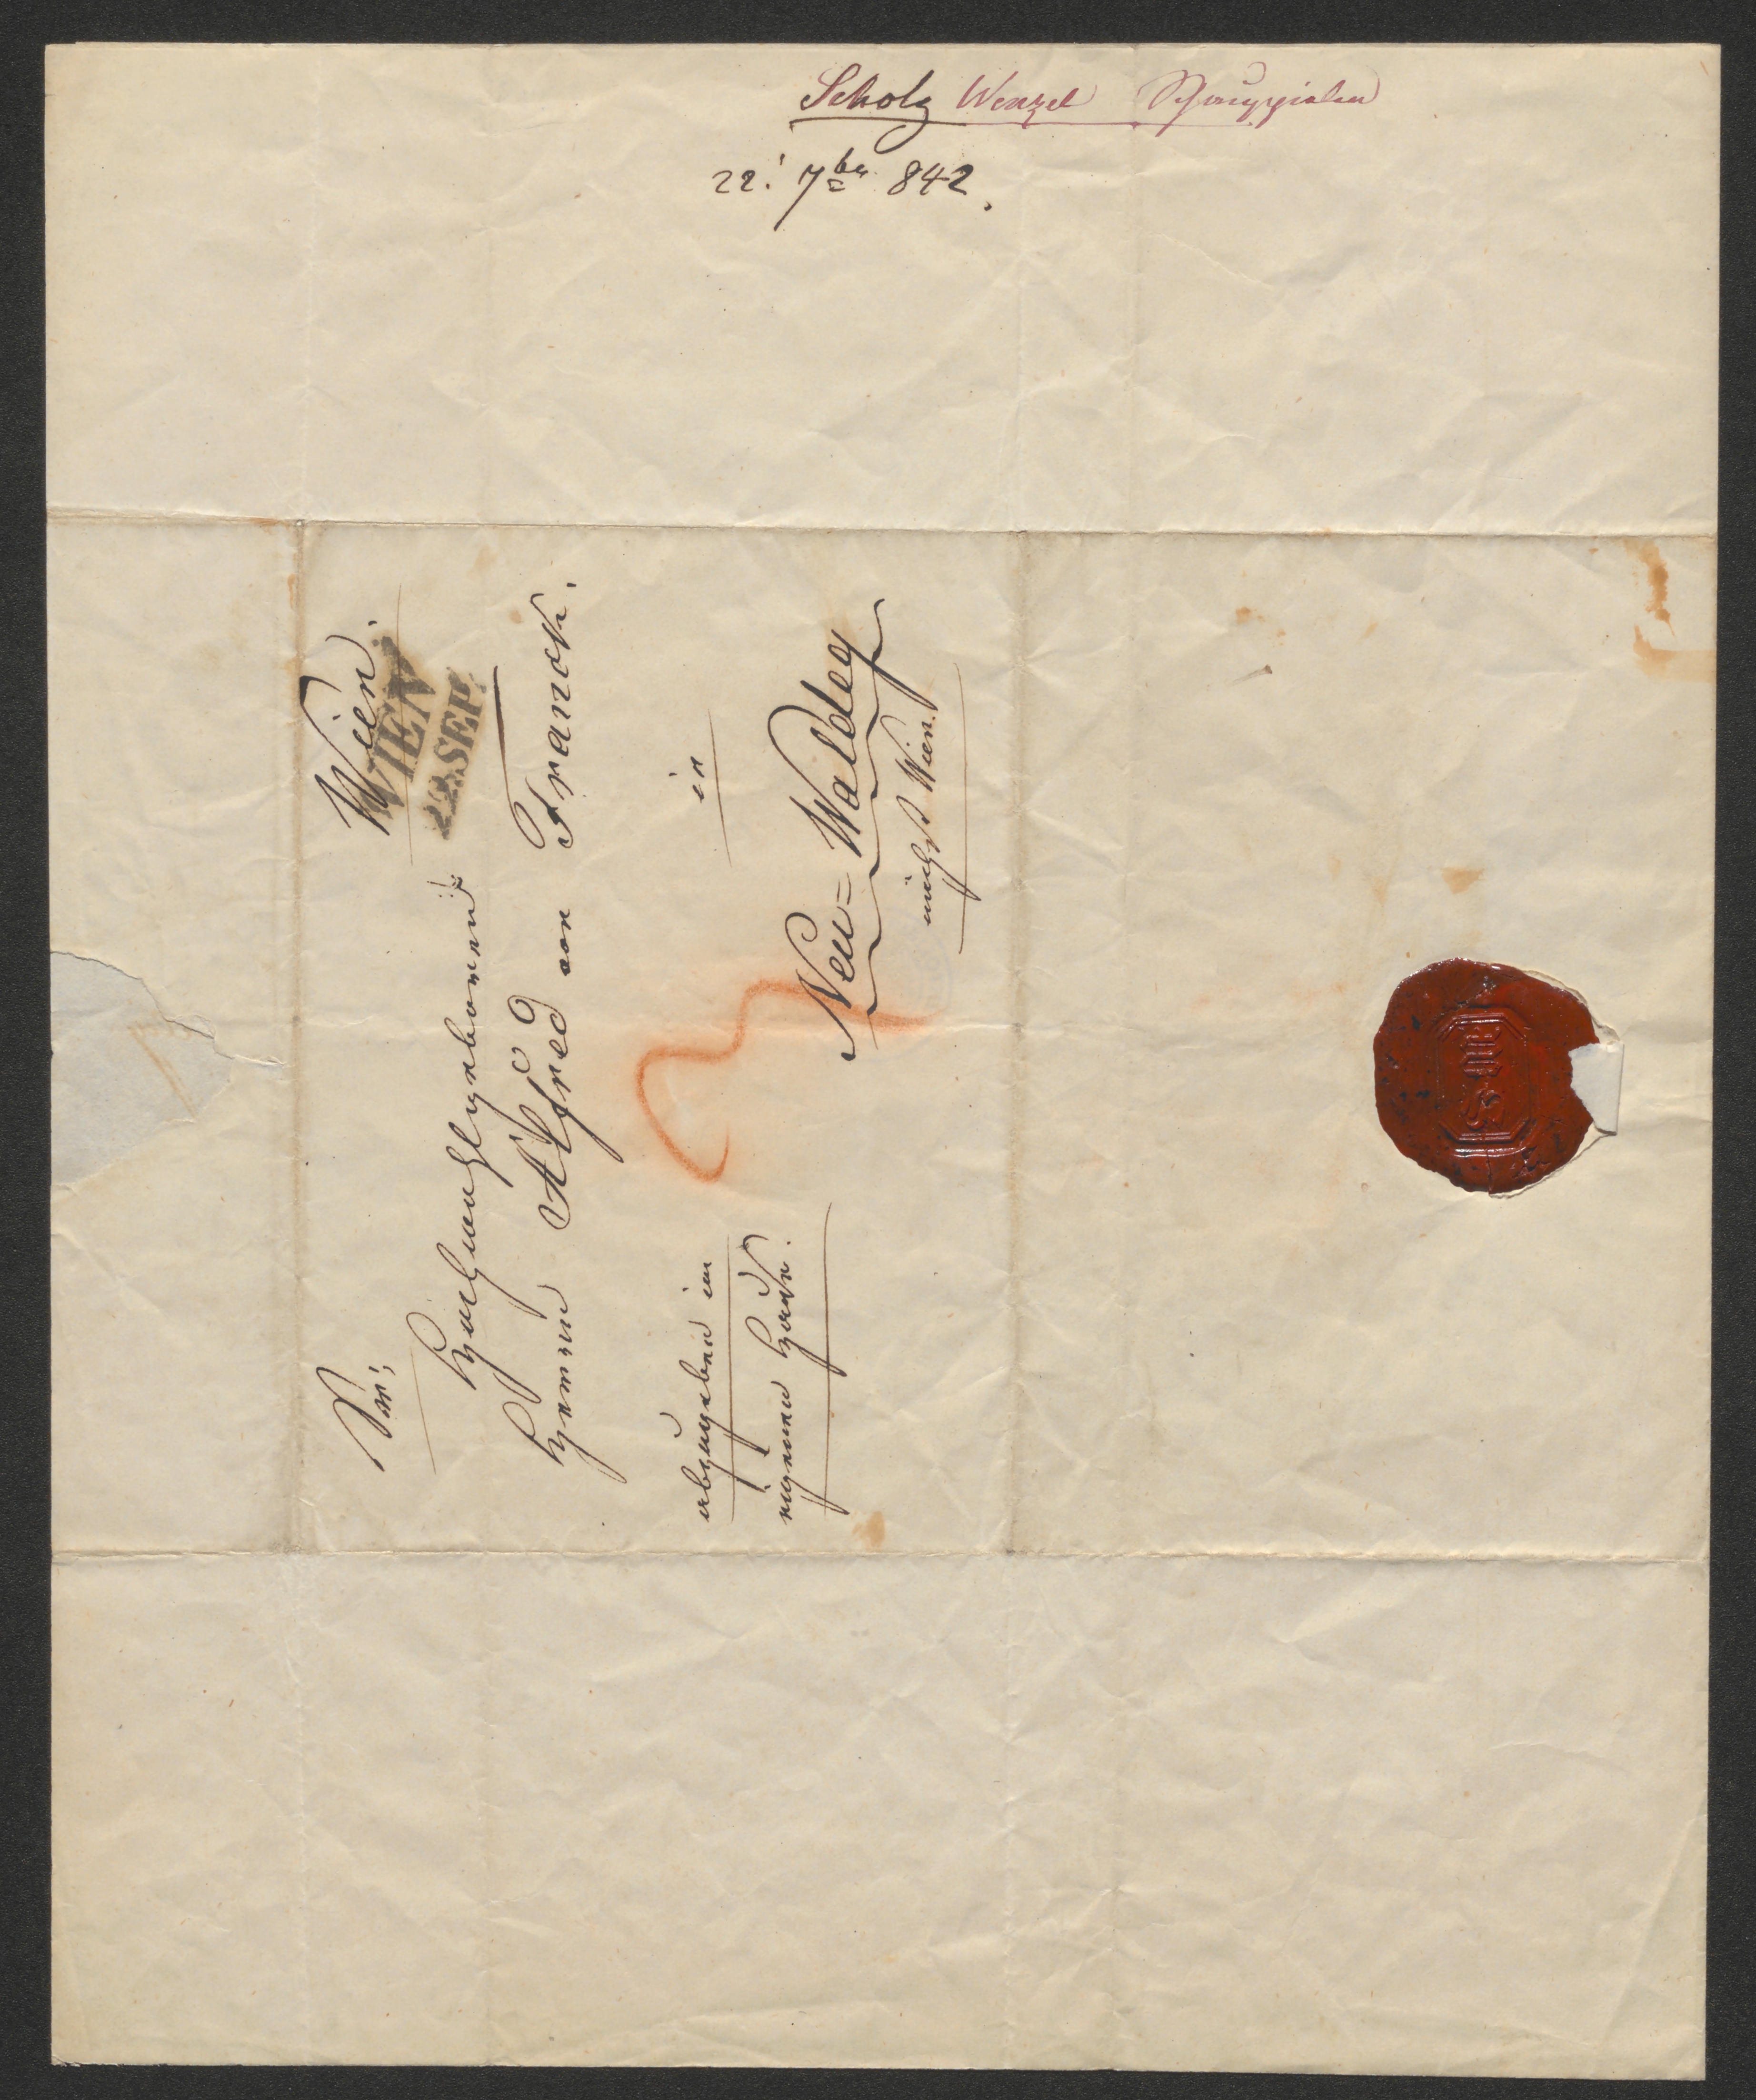 Scholz Wenzel Schauspieler
22t 7ber 842.
Wien.
WIEN
22. SEP.
Sr:
Hochwohlgeboren
Herrn Alfred von Franck.
in
abzugeben im
eigenen Hause.
Neu=Waldeg
nächst Wien.